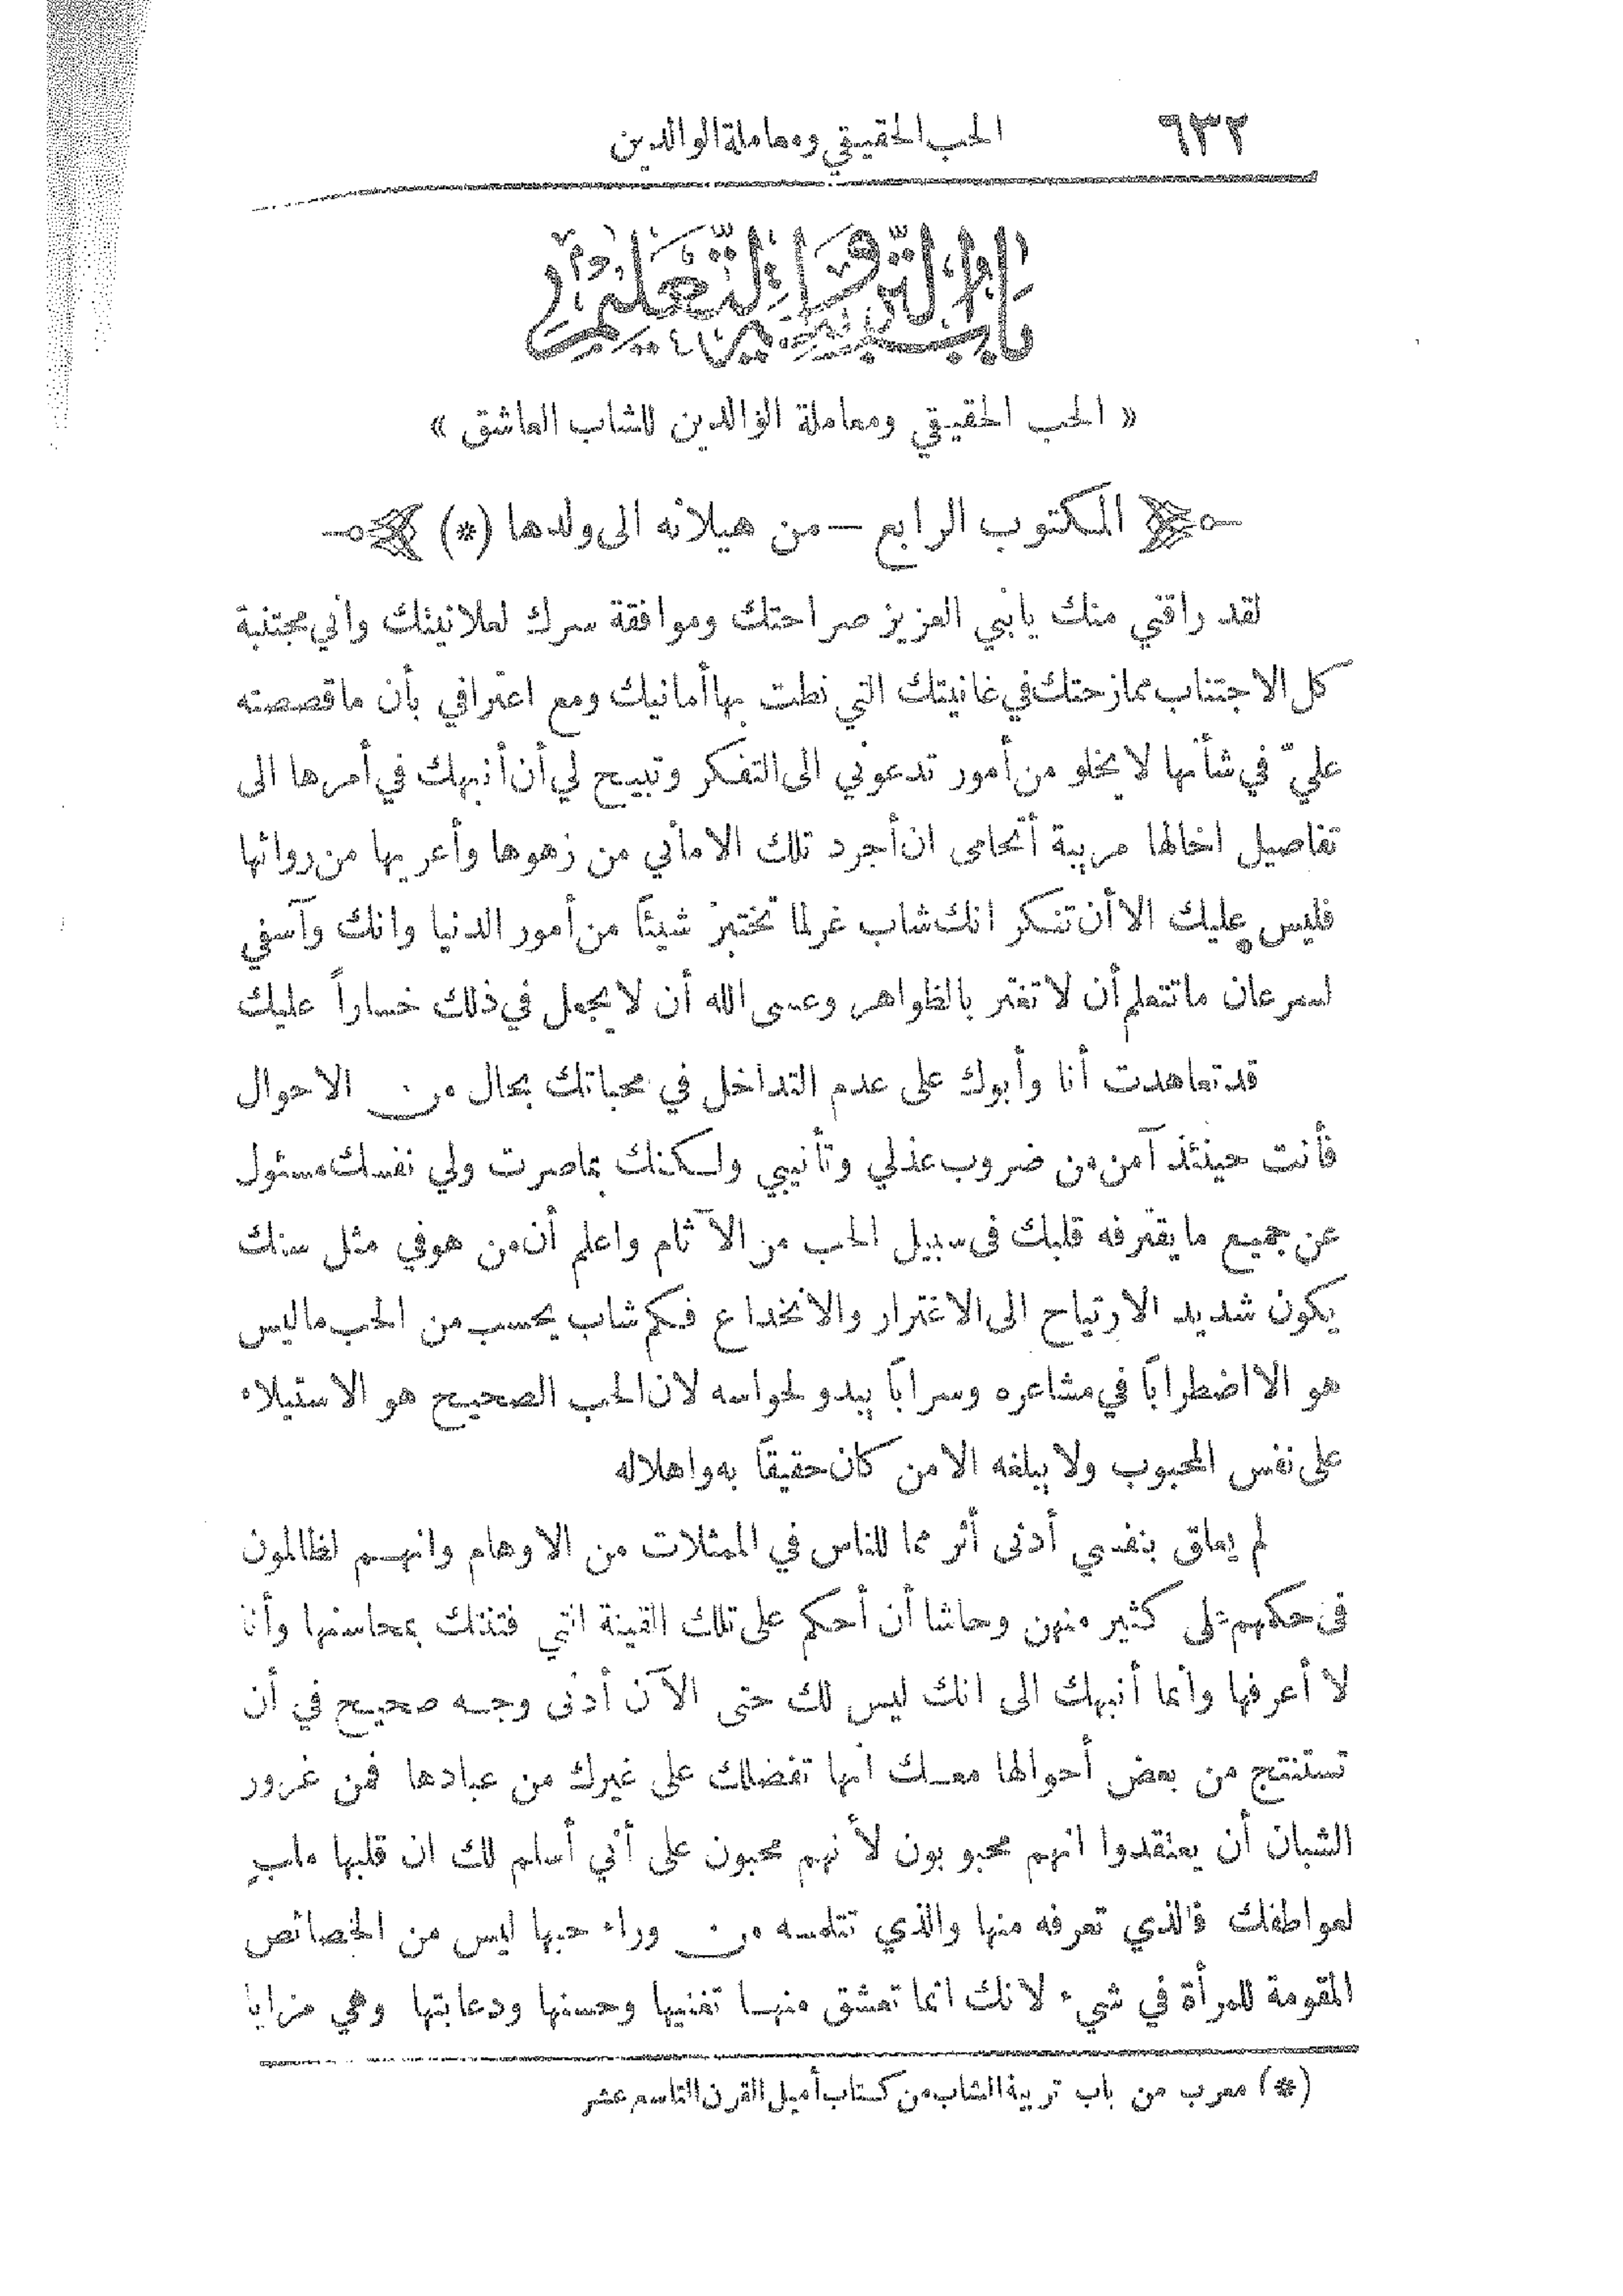 ٦٣٢
الحب الحقيقي ومعاملة الوالدين
باب التربية والتعليم
« الحب الحقيقي ومعاملة الوالدين للشاب العاشق »
المكتوب الرابع — من هيلانه الى ولدها (*)
لقد راقني منك يابني العزيز صراحتك وموافقة سرك لعلانيتك واني مجتنبة
كل الاجتناب ممازحتك في غانيتك التي نطت بها أمانيك ومع اعترافي بأن ما قصصته
عليّ في شأنها لا يخلو من أمور تدعوني الى التفكر وتبيح لي أن أنبهك في أمرها الى
تفاصيل اخالها مريبة أتحامى ان أجرد تلك الاماني من زهوها وأعريها من روائها
فليس عليك الا أن تتذكر انك شاب غر لما تختبر شيئاً من أمور الدنيا وانك وآسفي
لسرعان ما تتعلم أن لا تغتر بالظواهر وعسى الله أن لا يجعل في ذلك خساراً عليك
قد تعاهدت أنا وأبوك على عدم التداخل في محباتك بحال من الاحوال
فأنت حينئذ آمن من ضروب عذلي وتأنيبي ولكنك بما صرت ولي نفسك مسئول
عن جميع ما يقترفه قلبك في سبيل الحب من الآثام واعلم أن من هو في مثل سنك
يكون شديد الارتياح الى الاغترار والانخداع فكم شاب يحسب من الحب ما ليس
هو الا اضطراباً في مشاعره وسراباً يبدو لحواسه لان الحب الصحيح هو الاستيلاء
على نفس المحبوب ولا يبلغه الا من كان حقيقاً به واهلا له
لم يعلق بنفسي أدنى أثر مما للناس في الممثلات من الاوهام وانهم لظالمون
في حكمهم على كثير منهن وحاشا أن أحكم على تلك القينة التي فتنتك بمحاسنها وأنا
لا أعرفها وانما أنبهك الى انك ليس لك حتى الآن أدنى وجه صحيح في أن
تستنتج من بعض أحوالها معك أنها تفضلك على غيرك من عبادها فمن غرور
الشبان أن يعتقدوا انهم محبوبون لأنهم محبون على أني أسلم لك ان قلبها ملبٍ
لعواطفك فالذي تعرفه منها والذي تتلمسه من وراء حبها ليس من الخصائص
المقومة للمرأة في شيء لانك انما تعشق منها تغنيها وحسنها ودعابتها وهي مزايا
(*) معرب من باب تربية الشاب من كتاب أميل القرن التاسع عشر